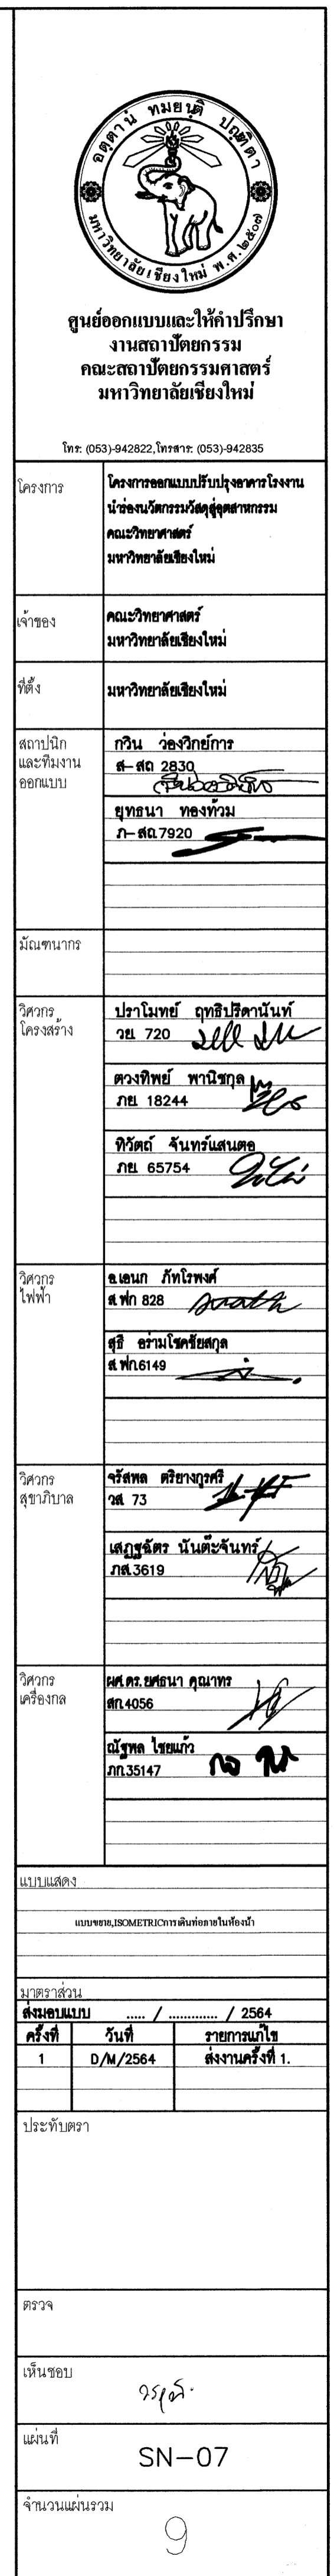 อตฺตานํ ทมยนฺติ ปณฺฑิตา
มหาวิทยาลัยเชียงใหม่ พ.ศ. ๒๕๐๗
ศูนย์ออกแบบและให้คำปรึกษา
งานสถาปัตยกรรม
คณะสถาปัตยกรรมศาสตร์
มหาวิทยาลัยเชียงใหม่
โทร: (053)-942822,โทรสาร: (053)-942835
โครงการ
โครงการออกแบบปรับปรุงอาคารโรงงาน
นำร่องนวัตกรรมวัสดุสู่อุตสาหกรรม
คณะวิทยาศาสตร์
มหาวิทยาลัยเชียงใหม่
เจ้าของ
คณะวิทยาศาสตร์
มหาวิทยาลัยเชียงใหม่
ที่ตั้ง
มหาวิทยาลัยเชียงใหม่
สถาปนิก
และทีมงาน
ออกแบบ
กวิน ว่องวิกย์การ
ส-สถ 2830
ยุทธนา ทองท้วม
ภ-สถ.7920
มัณฑนากร
วิศวกร
โครงสร้าง
ปราโมทย์ ฤทธิปรีดานันท์
วย. 720
ตวงทิพย์ พานิชกุล
ภย. 18244
ทิวัตถ์ จันทร์แสนตอ
ภย. 65754
วิศวกร
ไฟฟ้า
อ.เอนก ภัทโรพงศ์
ส.ฟก 828
สุธี อร่ามโชคชัยสกุล
ส.ฟก.6149
วิศวกร
สุขาภิบาล
จรัสพล ตริยางกูรศรี
วส. 73
เสฏฐฉัตร นันต๊ะจันทร์
ภส.3619
วิศวกร
เครื่องกล
ผศ.ดร.ยศธนา คุณาทร
สก.4056
ณัฐพล ไชยแก้ว
ภก.35147
แบบแสดง
แบบขยาย,ISOMETRICการเดินท่อภายในห้องน้ำ
มาตราส่วน
ส่งมอบแบบ ..... / ............. / 2564
ครั้งที่ วันที่ รายการแก้ไข
1 D/M/2564 ส่งงานครั้งที่ 1.
ประทับตรา
ตรวจ
เห็นชอบ
แผ่นที่
SN-07
จำนวนแผ่นรวม
9